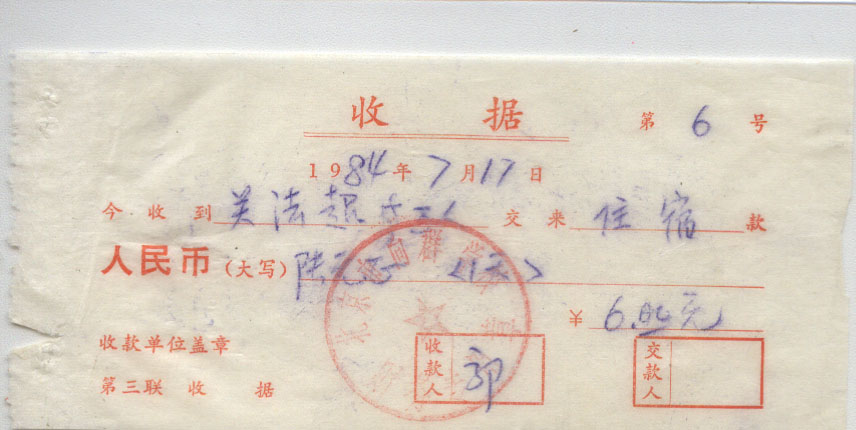 收 据 第 6 号
1984年7月17日
今收到 关法超 交来 住宿 款
人民币（大写）陆元 〈1天〉
￥ 6.00元
收款单位盖章 收款人 郭 交款人
第三联 收 据